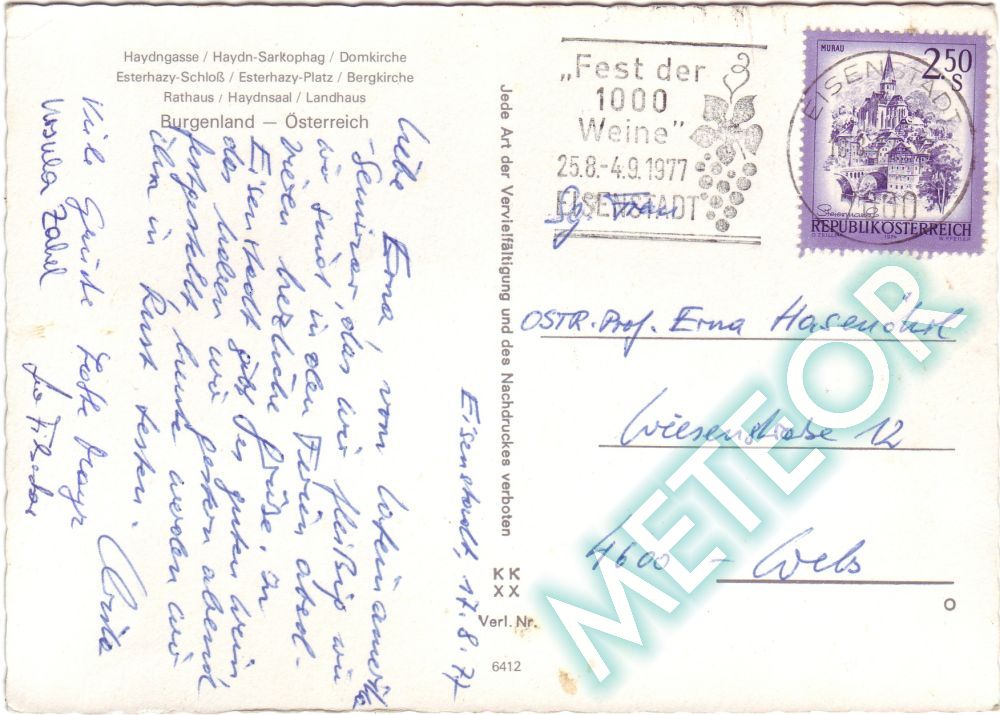 Haydngasse / Haydn-Sarkophag / Domkirche
Esterhazy-Schloß / Esterhazy-Platz / Bergkirche
Rathaus / Haydnsaal / Landhaus
Burgenland — Österreich
Eisenstadt, 17. 8. 77
Liebe Erna, vom Lateinamerika
-Seminar, das wir fleißig wie
wir sind in den Ferien absol-
vieren herzliche Grüße. In
Eisenstadt gibt es guten Wein
das haben wir gestern abend
festgestellt heute werden wir
ihn in Rust testen.
Viele Grüße
Ursula Zabel
Jede Art der Vervielfältigung und des Nachdruckes verboten
KK
XX
Verl. Nr.
6412
„Fest der
1000
Weine"
25.8.-4.9.1977
EISENSTADT
MURAU
2.50
S
Steiermark
REPUBLIK ÖSTERREICH
EISENSTADT
Frau
OSTR. Prof. Erna Hasenöhrl
Wiesenstraße 12
4600 - Wels
METEOR